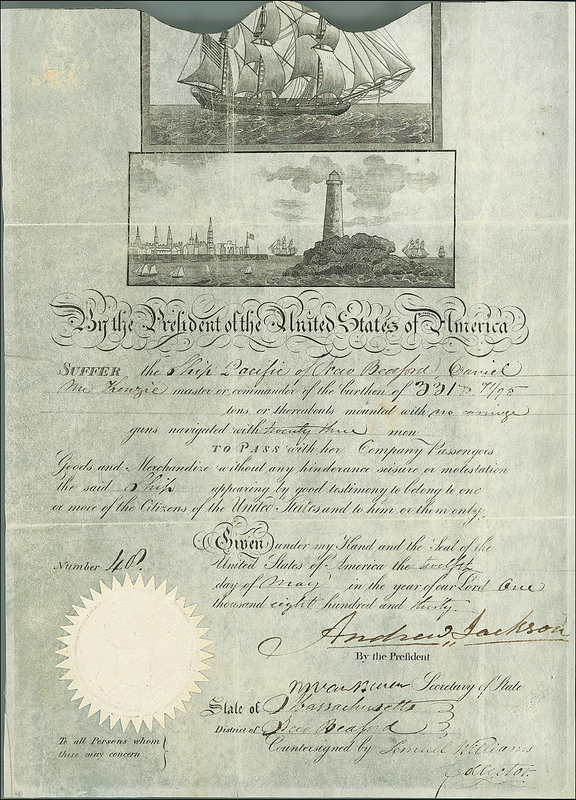 By the President of the United States of America
SUFFER the Ship Pacific of New Bedford, Daniel
McKenzie master or commander of the burthen of 331 71/95
tons or thereabouts mounted with no carriage
guns navigated with twenty three men
TO PASS with her Company Passengers
Goods and Merchandize without any hinderance seisure or molestation
the said Ship appearing by good testimony to belong to one
or more of the Citizens of the United States and to him or them only.
Given under my Hand and the Seal of the
Number 40. United States of America the twelfth
day of May in the year of our Lord One
thousand eight hundred and thirty
Andrew Jackson
By the President
M Van Buren Secretary of State
State of Massachusetts
District of New Bedford
To all Persons whom
these may concern
Countersigned by Lemuel Williams
Collector.